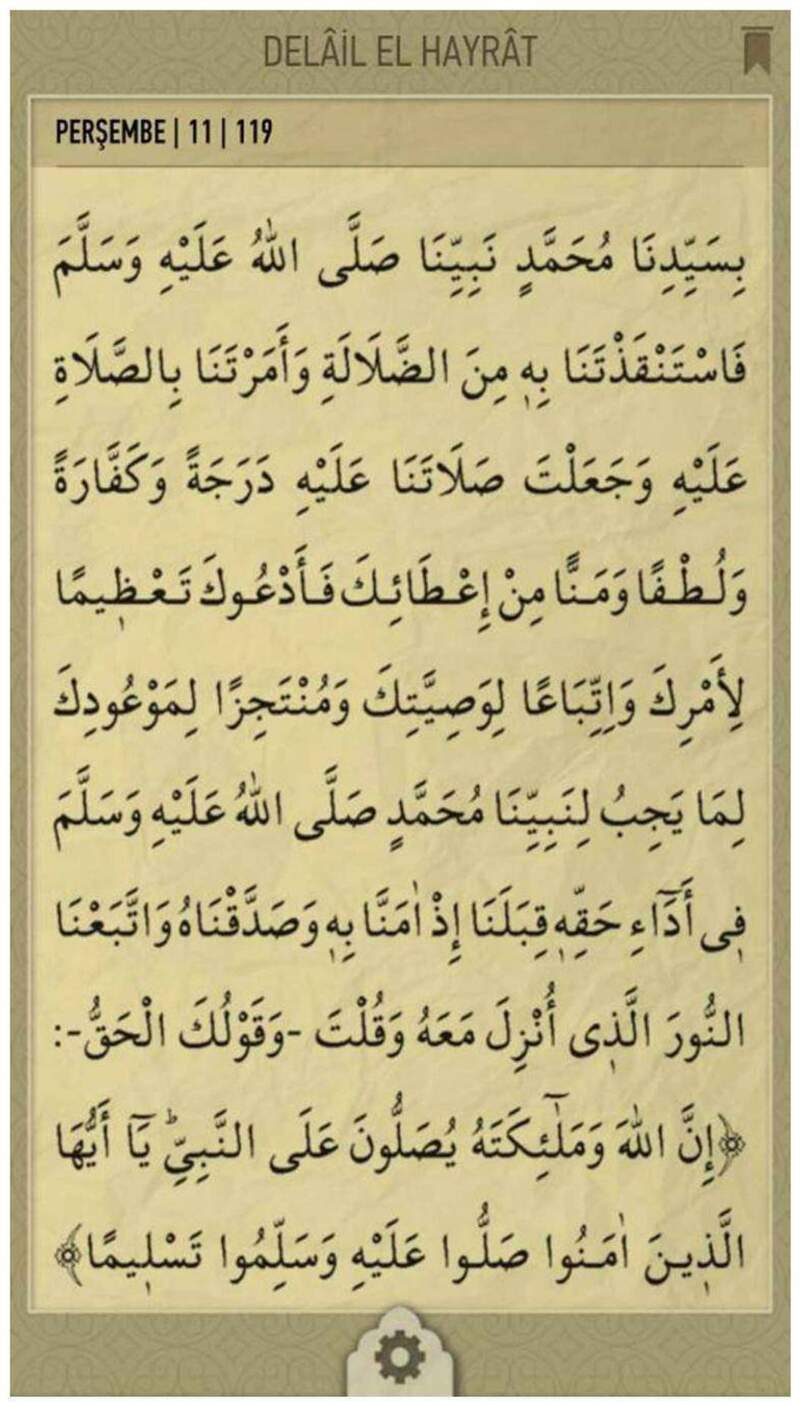 DELÂİL EL HAYRÂT
PERŞEMBE | 11 | 119
بِسَيِّدِنَا مُحَمَّدٍ نَبِيِّنَا صَلَّى اللّٰهُ عَلَيْهِ وَسَلَّمَ
فَاسْتَنْقَذْتَنَا بِهٖ مِنَ الضَّلَالَةِ وَأَمَرْتَنَا بِالصَّلَاةِ
عَلَيْهِ وَجَعَلْتَ صَلَاتَنَا عَلَيْهِ دَرَجَةً وَكَفَّارَةً
وَلُطْفًا وَمَنًّا مِنْ إِعْطَائِكَ فَأَدْعُوكَ تَعْظٖيمًا
لِأَمْرِكَ وَاِتِّبَاعًا لِوَصِيَّتِكَ وَمُنْتَجِزًا لِمَوْعُودِكَ
لِمَا يَجِبُ لِنَبِيِّنَا مُحَمَّدٍ صَلَّى اللّٰهُ عَلَيْهِ وَسَلَّمَ
فٖى أَدَٓاءِ حَقِّهٖ قِبَلَنَا إِذْ اٰمَنَّا بِهٖ وَصَدَّقْنَاهُ وَاتَّبَعْنَا
النُّورَ الَّذٖى أُنْزِلَ مَعَهُ وَقُلْتَ -وَقَوْلُكَ الْحَقُّ-:
﴿إِنَّ اللّٰهَ وَمَلٰٓئِكَتَهُ يُصَلُّونَ عَلَى النَّبِيِّؕ يَٓا أَيُّهَا
الَّذٖينَ اٰمَنُوا صَلُّوا عَلَيْهِ وَسَلِّمُوا تَسْلٖيمًا﴾